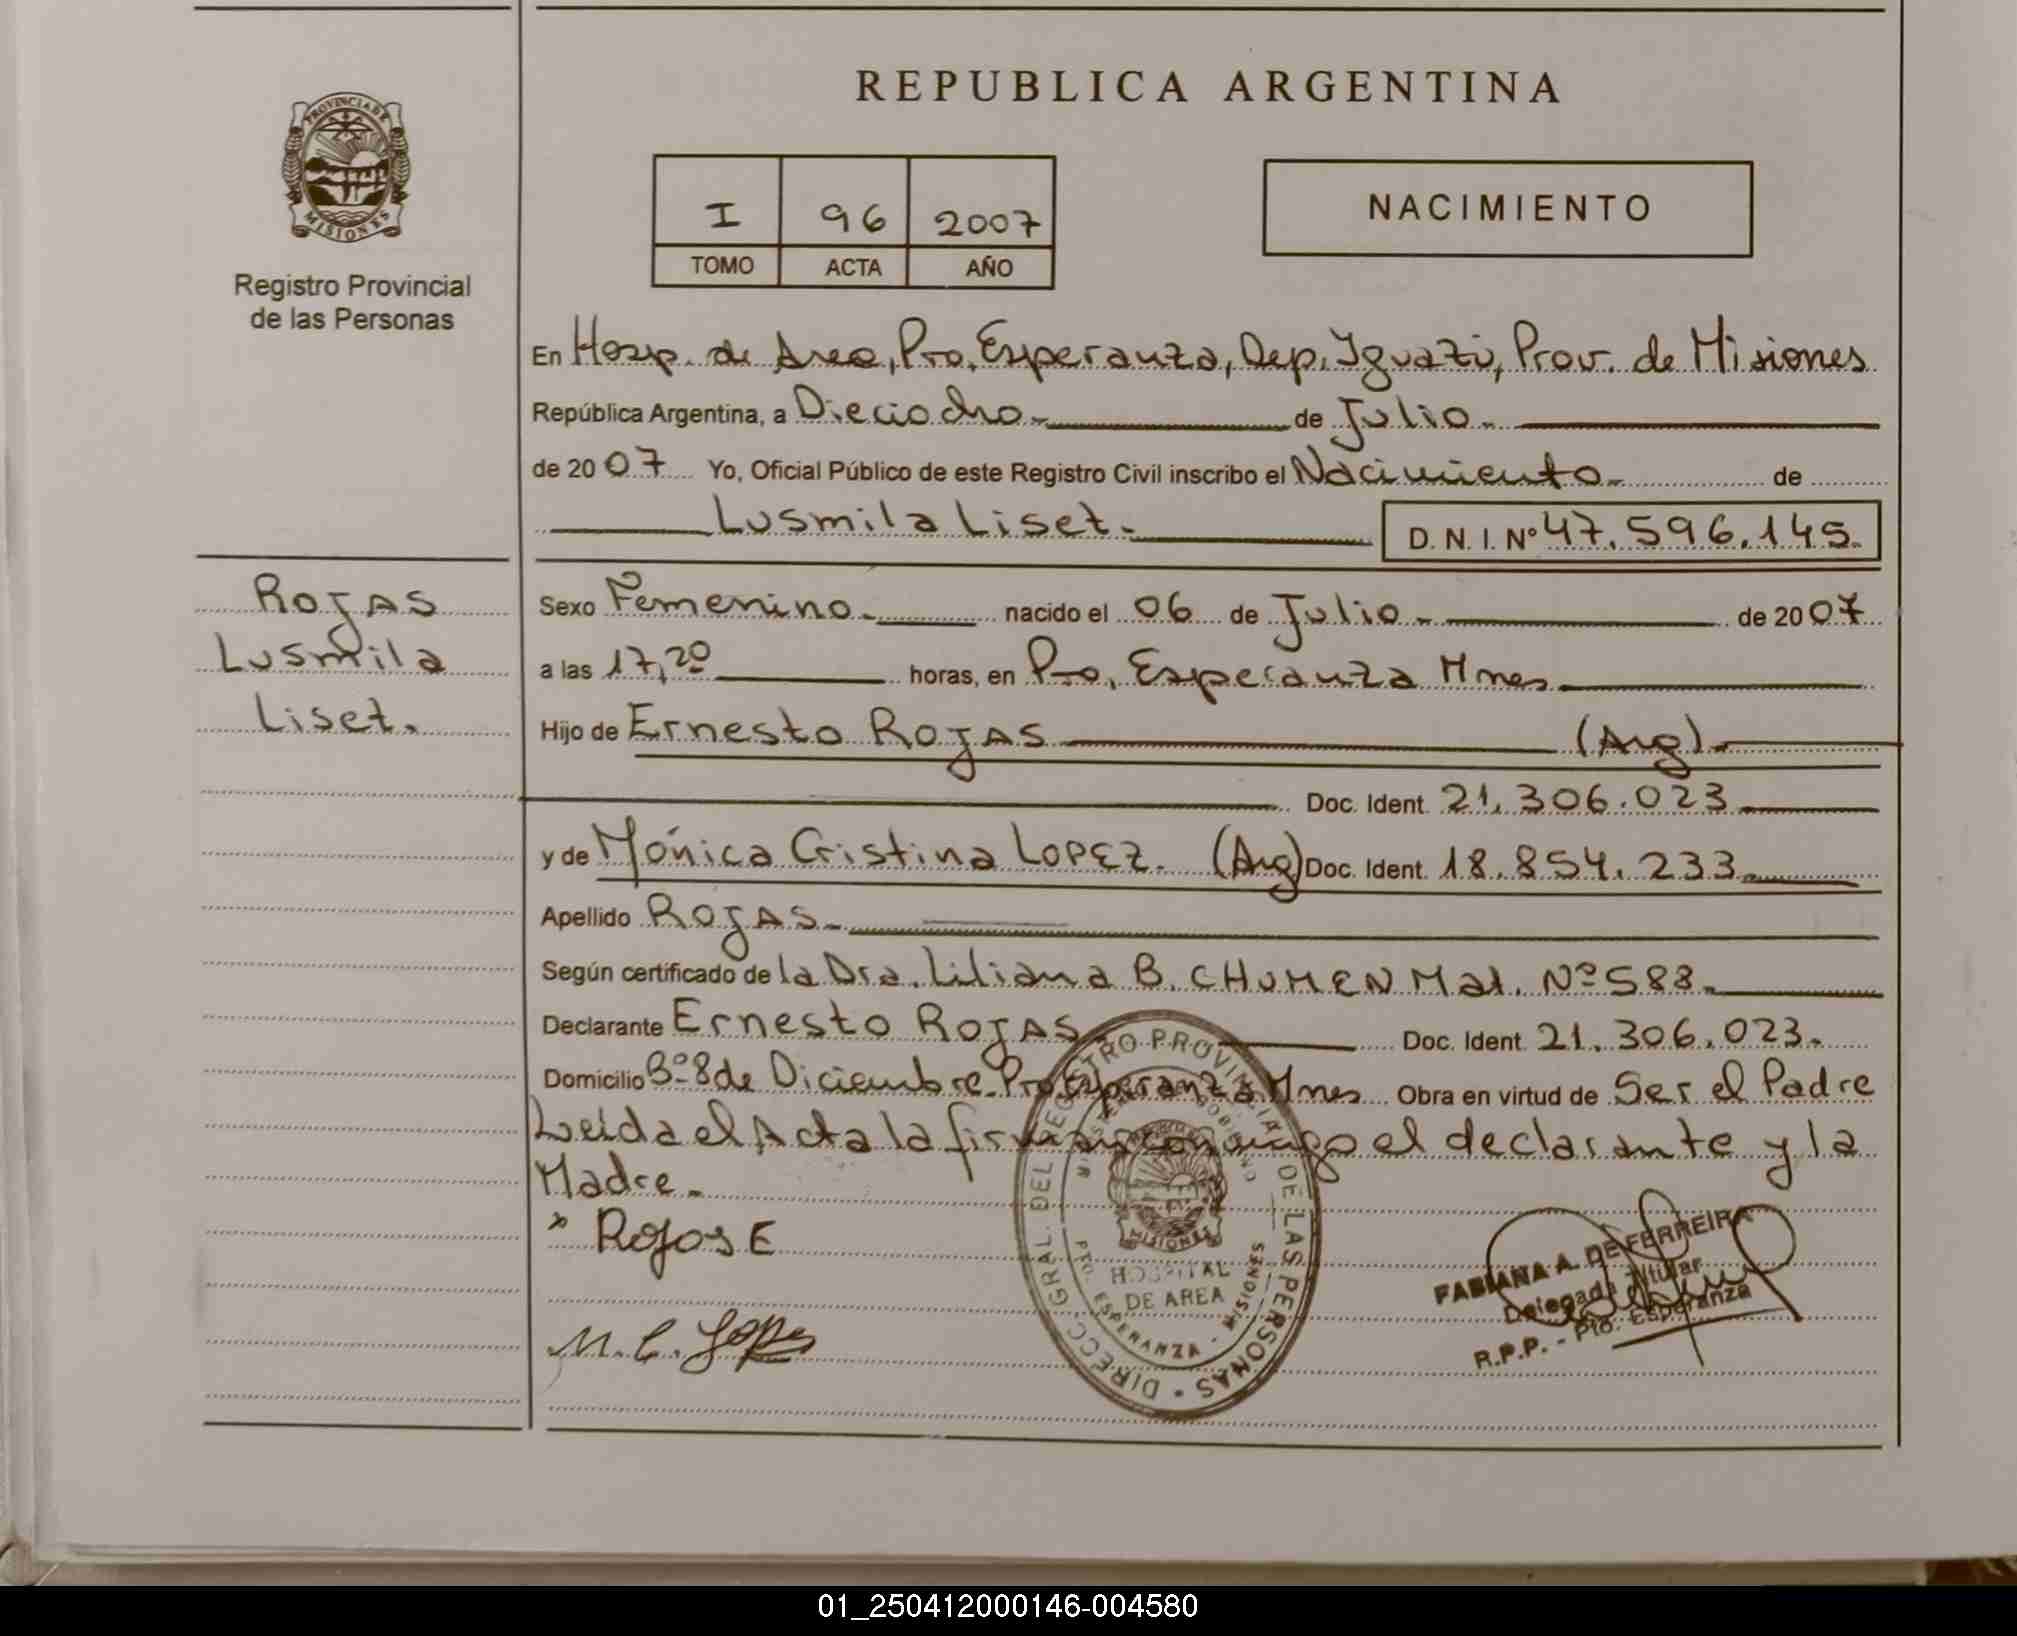 REPUBLICA ARGENTINA
PROVINCIA DE
MISIONES
Registro Provincial
de las Personas
I 96 2007
TOMO ACTA AÑO
NACIMIENTO
En Hosp. de Area, Pto. Esperanza, Dep. Iguazú, Prov. de Misiones
República Argentina, a Dieciocho de Julio.
de 2007 Yo, Oficial Público de este Registro Civil inscribo el Nacimiento. de
Lusmila Liset.
D. N. I. Nº 47.596.145.
ROJAS
Lusmila
Liset.
Sexo Femenino. nacido el 06 de Julio. de 2007
a las 17,20 horas, en Pto. Esperanza Mnes
Hijo de Ernesto ROJAS (Arg).
Doc. Ident. 21.306.023
y de Mónica Cristina LOPEZ. (Arg) Doc. Ident. 18.854.233
Apellido ROJAS.
Según certificado de la Dra. Liliana B. CHUMEN Mat. Nº 588.
Declarante Ernesto ROJAS Doc. Ident. 21.306.023.
Domicilio Bº 8 de Diciembre. Pto Esperanza Mnes Obra en virtud de Ser el Padre
Leída el Acta la firman conmigo el declarante y la
Madre.
x Rojas E
M. C. Lopez
DIRECC. GRAL. DEL REGISTRO PROVINCIAL DE LAS PERSONAS
MISIONES
HOSPITAL
DE AREA
PTO. ESPERANZA - MISIONES
FABIANA A. DE FERREIRA
Delegada Titular
R.P.P. - Pto. Esperanza
01_250412000146-004580